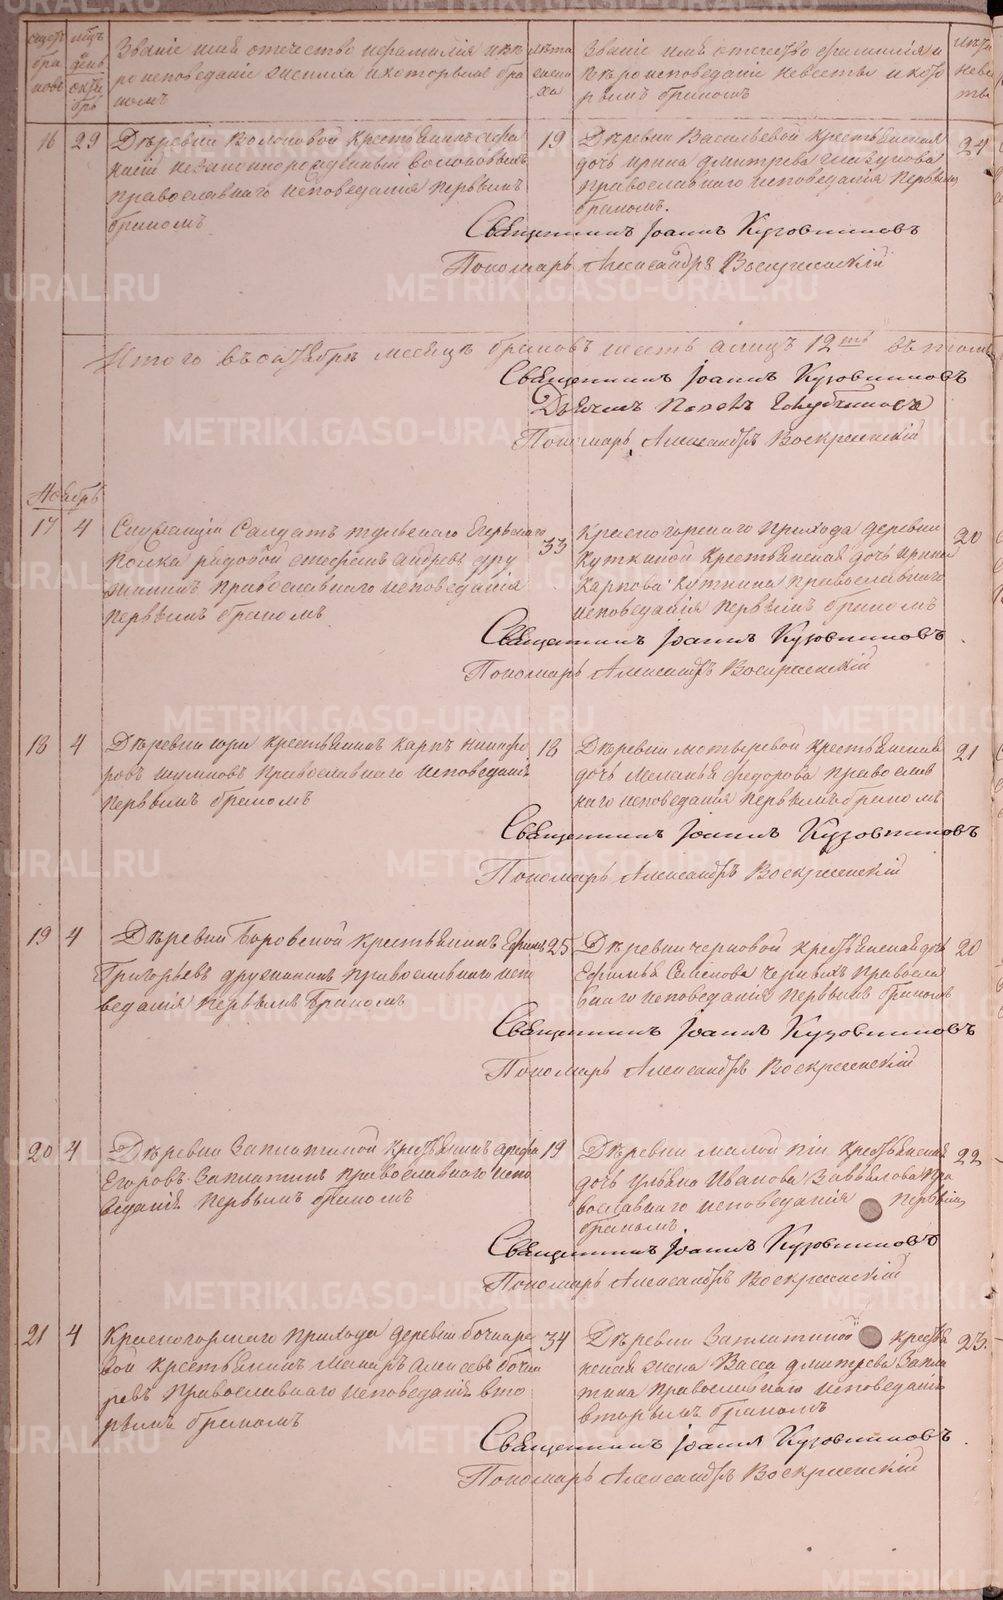 счетъ браковъ
мѣцъ день октябрь
Званіе имя отечество ифамилія икако
роисповеданія жениха икоторымъ бра
комъ
лѣта жени ха
Званіе имя отечество фамилія и
вѣроисповеданіе невесты икото
рымъ бракомъ
лѣта невес ты
16 29 Дѣревни Волоковой Крестьянинъ
незаконнорожденный Волоковыхъ
православнаго исповеданія первымъ
бракомъ
19
Дѣревни Васильевой крестьянская
дочь Ирина Дмитрева
православнаго исповеданія первымъ
бракомъ.
24
Священникъ Іоаннъ Кузовниковъ
Пономарь Александръ Воскресенскій
Итого въ октябрѣ месяцѣ браковъ шесть алицъ 12ть
Священникъ Іоаннъ Кузовниковъ
Дьячекъ
Пономарь Александръ Воскресенскій
Ноябрь
17 4 Салдатъ Егерьскаго
Полка рядовой Андреевъ Дру
жининъ Православнаго исповеданія
Первымъ бракомъ
33
Красногорскаго Прихода деревни
Куткиной Крестьянская дочь Ирина
Карпова Куткина православнаго
исповеданія первымъ бракомъ
20
Священникъ Іоаннъ Кузовниковъ
Пономарь Александръ Воскресенскій
18 4 Дѣревни крестьянинъ Карпъ Никифо
ровъ Шумковъ Православнаго исповеданія
первымъ бракомъ
18
Дѣревни Мотыревой Крестьянская
дочь Меланья Федорова православ
наго исповеданія первымъ бракомъ
21
Священникъ Іоаннъ Кузовниковъ
Пономарь Александръ Воскресенскій
19 4 Дѣревни Боровской Крестьянинъ Ефимъ
Григорьевъ Дружининъ православнаго испо
веданія первымъ бракомъ
25
Дѣревни Черновой крестьянская дочь
Семенова Черныхъ Правосла
внаго исповеданія первымъ бракомъ
20
Священникъ Іоаннъ Кузовниковъ
Пономарь Александръ Воскресенскій
20 4 Дѣревни Заплатиной крестьянинъ
Егоровъ Заплатинъ православнаго испо
веданія первымъ бракомъ
19
Дѣревни Малой крестьянская
дочь Ульяна Иванова Завьялова Пра
вославнаго исповеданія первымъ
бракомъ.
22
Священникъ Іоаннъ Кузовниковъ
Пономарь Александръ Воскресенскій
21 4 Красногорскаго Прихода деревни Бочкаре
вой крестьянинъ Алексеевъ Бочка
ревъ Православнаго исповеданія вто
рымъ бракомъ
34
Дѣревни Заплатиной крестья
нская жена Васса Дмитрева Запла
тина православнаго исповеданія
вторымъ бракомъ
23.
Священникъ Іоаннъ Кузовниковъ
Пономарь Александръ Воскресенскій
METRIKI.GASO-URAL.RU